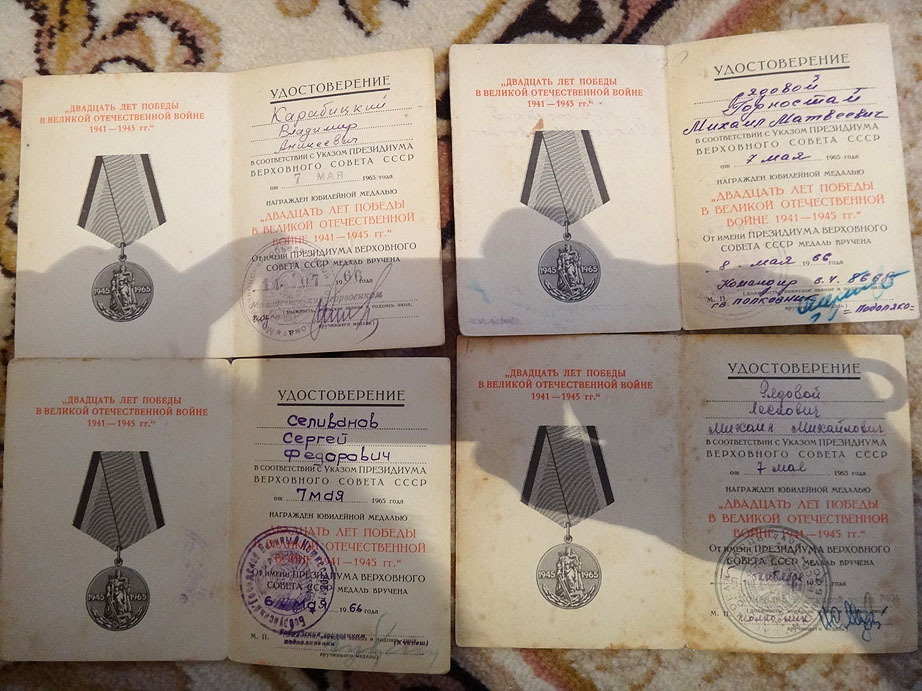 „ДВАДЦАТЬ ЛЕТ ПОБЕДЫ
В ВЕЛИКОЙ ОТЕЧЕСТВЕННОЙ ВОЙНЕ
1941—1945 гг.“
1945 1965
УДОСТОВЕРЕНИЕ
Карабицкий
Владимир
Аникеевич
В СООТВЕТСТВИИ С УКАЗОМ ПРЕЗИДИУМА
ВЕРХОВНОГО СОВЕТА СССР
от 7 МАЯ 1965 года
НАГРАЖДЕН ЮБИЛЕЙНОЙ МЕДАЛЬЮ
„ДВАДЦАТЬ ЛЕТ ПОБЕДЫ
В ВЕЛИКОЙ ОТЕЧЕСТВЕННОЙ
ВОЙНЕ 1941—1945 гг.“
От имени ПРЕЗИДИУМА ВЕРХОВНОГО
СОВЕТА СССР МЕДАЛЬ ВРУЧЕНА
07 1966 года
вручившего медаль)
„ДВАДЦАТЬ ЛЕТ ПОБЕДЫ
В ВЕЛИКОЙ ОТЕЧЕСТВЕННОЙ ВОЙНЕ
1941—1945 гг.“
1945 1965
УДОСТОВЕРЕНИЕ
рядовой
Горностай
Михаил Матвеевич
В СООТВЕТСТВИИ С УКАЗОМ ПРЕЗИДИУМА
ВЕРХОВНОГО СОВЕТА СССР
от 7 мая 1965 года
НАГРАЖДЕН ЮБИЛЕЙНОЙ МЕДАЛЬЮ
„ДВАДЦАТЬ ЛЕТ ПОБЕДЫ
В ВЕЛИКОЙ ОТЕЧЕСТВЕННОЙ
ВОЙНЕ 1941—1945 гг.“
От имени ПРЕЗИДИУМА ВЕРХОВНОГО
СОВЕТА СССР МЕДАЛЬ ВРУЧЕНА
8 мая 1966 года
Командир в.ч.
М. П. гв. полковник
вручившего медаль)
„ДВАДЦАТЬ ЛЕТ ПОБЕДЫ
В ВЕЛИКОЙ ОТЕЧЕСТВЕННОЙ ВОЙНЕ
1941—1945 гг.“
1945 1965
УДОСТОВЕРЕНИЕ
Селиванов
Сергей
Федорович
В СООТВЕТСТВИИ С УКАЗОМ ПРЕЗИДИУМА
ВЕРХОВНОГО СОВЕТА СССР
от 7 мая 1965 года
НАГРАЖДЕН ЮБИЛЕЙНОЙ МЕДАЛЬЮ
„ДВАДЦАТЬ ЛЕТ ПОБЕДЫ
В ВЕЛИКОЙ ОТЕЧЕСТВЕННОЙ
ВОЙНЕ 1941—1945 гг.“
От имени ПРЕЗИДИУМА ВЕРХОВНОГО
СОВЕТА СССР МЕДАЛЬ ВРУЧЕНА
6 мая 1966 года
М. П.
подполковник
вручившего медаль)
„ДВАДЦАТЬ ЛЕТ ПОБЕДЫ
В ВЕЛИКОЙ ОТЕЧЕСТВЕННОЙ ВОЙНЕ
1941—1945 гг.“
1945 1965
УДОСТОВЕРЕНИЕ
Рядовой
Михаил Михайлович
В СООТВЕТСТВИИ С УКАЗОМ ПРЕЗИДИУМА
ВЕРХОВНОГО СОВЕТА СССР
от 7 мая 1965 года
НАГРАЖДЕН ЮБИЛЕЙНОЙ МЕДАЛЬЮ
„ДВАДЦАТЬ ЛЕТ ПОБЕДЫ
В ВЕЛИКОЙ ОТЕЧЕСТВЕННОЙ
ВОЙНЕ 1941—1945 гг.“
От имени ПРЕЗИДИУМА ВЕРХОВНОГО
СОВЕТА СССР МЕДАЛЬ ВРУЧЕНА
М. П.
полковник
вручившего медаль)